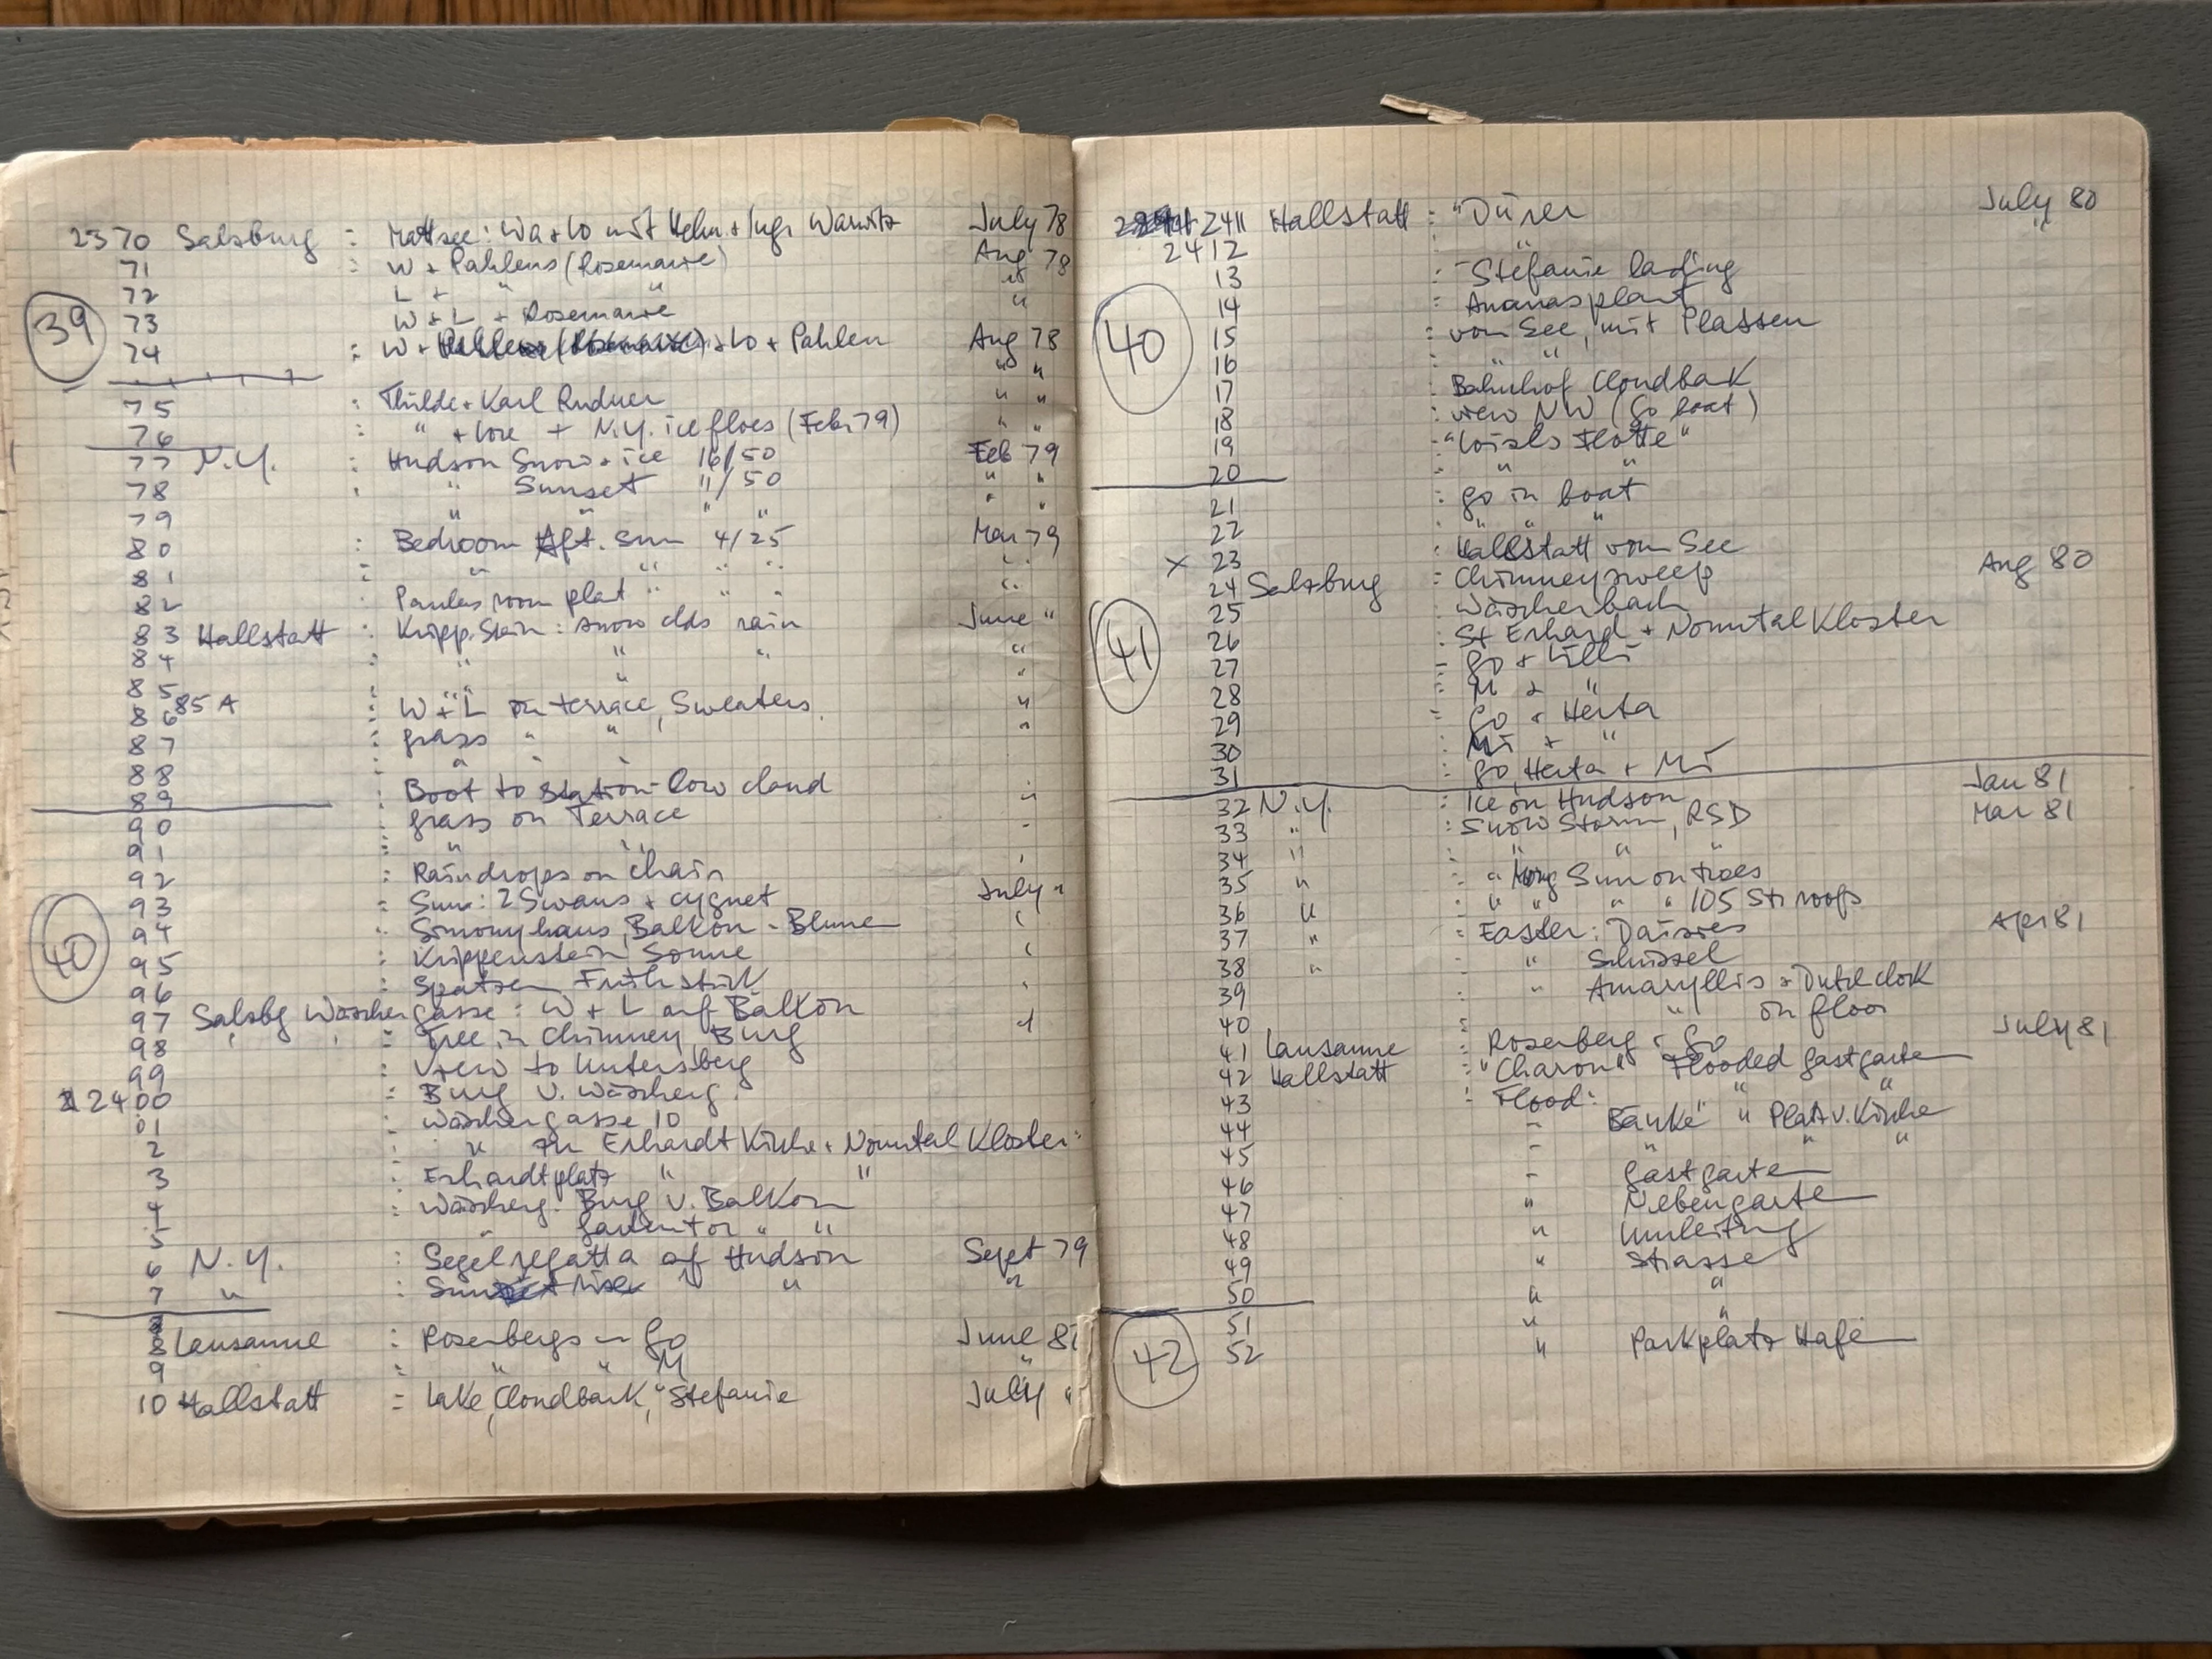 2370 Salzburg : Mattsee: Wa + Lo mit Helm. + Inge Warnitz July 78
71 : W + Pahlens (Rosemarie) Aug 78
72 L + " " "
73 W + L + Rosemarie "
39
74 : W + Lo + Pahlen Aug 78
" "
75 : Thilde + Karl Rudner " "
76 " + Lore + N.Y. ice floes (Feb. 79) " "
77 N.Y. : Hudson Snow + ice 16/50 Feb 79
78 " Sunset "/50 " "
79 " " " " " "
80 : Bedroom Aft. Sun 4/25 Mar 79
81 " " " " "
82 Paulas room plat " " " "
83 Hallstatt : Kripp. Stein: snow clds rain June "
84 : " " " "
85 : " " "
86 85A : W + L on terrace, Sweaters "
87 : grass " " "
88 " " "
89 : Boot to Station - low cloud "
90 : grass on Terrace "
91 " " "
92 : Raindrops on chain "
93 : Sun: 2 Swans + cygnet July "
40
94 : Simonyhaus, Balkon - Blumen "
95 : Krippenstein Sonne "
96 : Spatzen Frühstück "
97 Salzbg Wäschergasse : W + L auf Balkon
98 : Tree in Chimney, Burg "
99 : View to Untersberg
2400 : Burg v. Wäscherg.
01 : Wäschergasse 10
2 : " zu Erhardt Kirche + Nonntal Kloster
3 : Erhardtplatz " "
4 : Wäscherg. Burg v. Balkon
5 " Gartentor " "
6 N.Y. : Segelregatta of Hudson Sept 79
7 " : Sunrise " " "
8 Lausanne : Rosenbergs - Go June 81
9 : " " M "
10 Hallstatt : Lake, Cloudbank, "Stefanie July "
2411 Hallstatt : "Dürer July 80
2412 " "
13 : "Stefanie landing
14 : Ananasplant
40
15 : vom See, mit Plassen
16 " "
17 : Bahnhof Cloudbank
18 : view NW (Go boat)
19 : "Loisls Flotte"
20 " "
21 : Go in boat
22 " " "
x 23 : Hallstatt vom See
24 Salzburg : Chimneysweep Aug 80
25 : Wäscherbach
26 : St Erhard + Nonntal Kloster
41
27 : Go + Lilli
28 : M + "
29 : Go + Herta
30 : Mi + "
31 : Go, Herta + Mi
32 N.Y. : Ice on Hudson Jan 81
33 " : Snow Storm, RSD Mar 81
34 " : " " "
35 " : " Morg Sun on trees
36 " : " " " " 105 St. roofs
37 " : Easter: Daisies Apr 81
38 " : " Schüssel
39 : " Amaryllis + Dutch clock
40 : " on floor
41 Lausanne : Rosenberg - Go July 81
42 Hallstatt : "Charon" Flooded Gastgarten
43 : Flood: " "
44 - Bänke " Platz v. Kirche
45 - " " "
46 - Gastgarten
47 " Nebengarten
48 " Umleitung
49 " Strasse
50 " "
51 " "
42
52 " Parkplatz Hafen